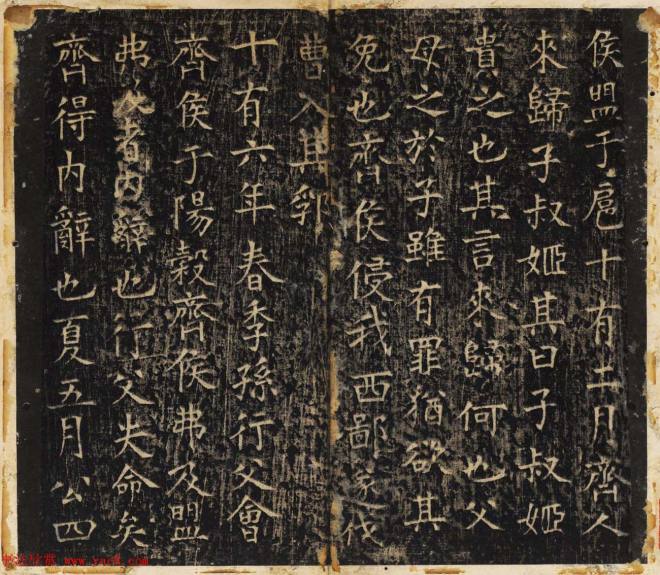 侯盟于扈十有二月齊人
來歸子叔姬其曰子叔姬
貴之也其言來歸何也父
母之於子雖有罪猶欲其
免也齊侯侵我西鄙遂伐
曹入其郛
十有六年春季孫行父會
齊侯于陽穀齊侯弗及盟
弗及者内辭也行父失命矣
齊得内辭也夏五月公四
书法欣赏 www.yac8.com